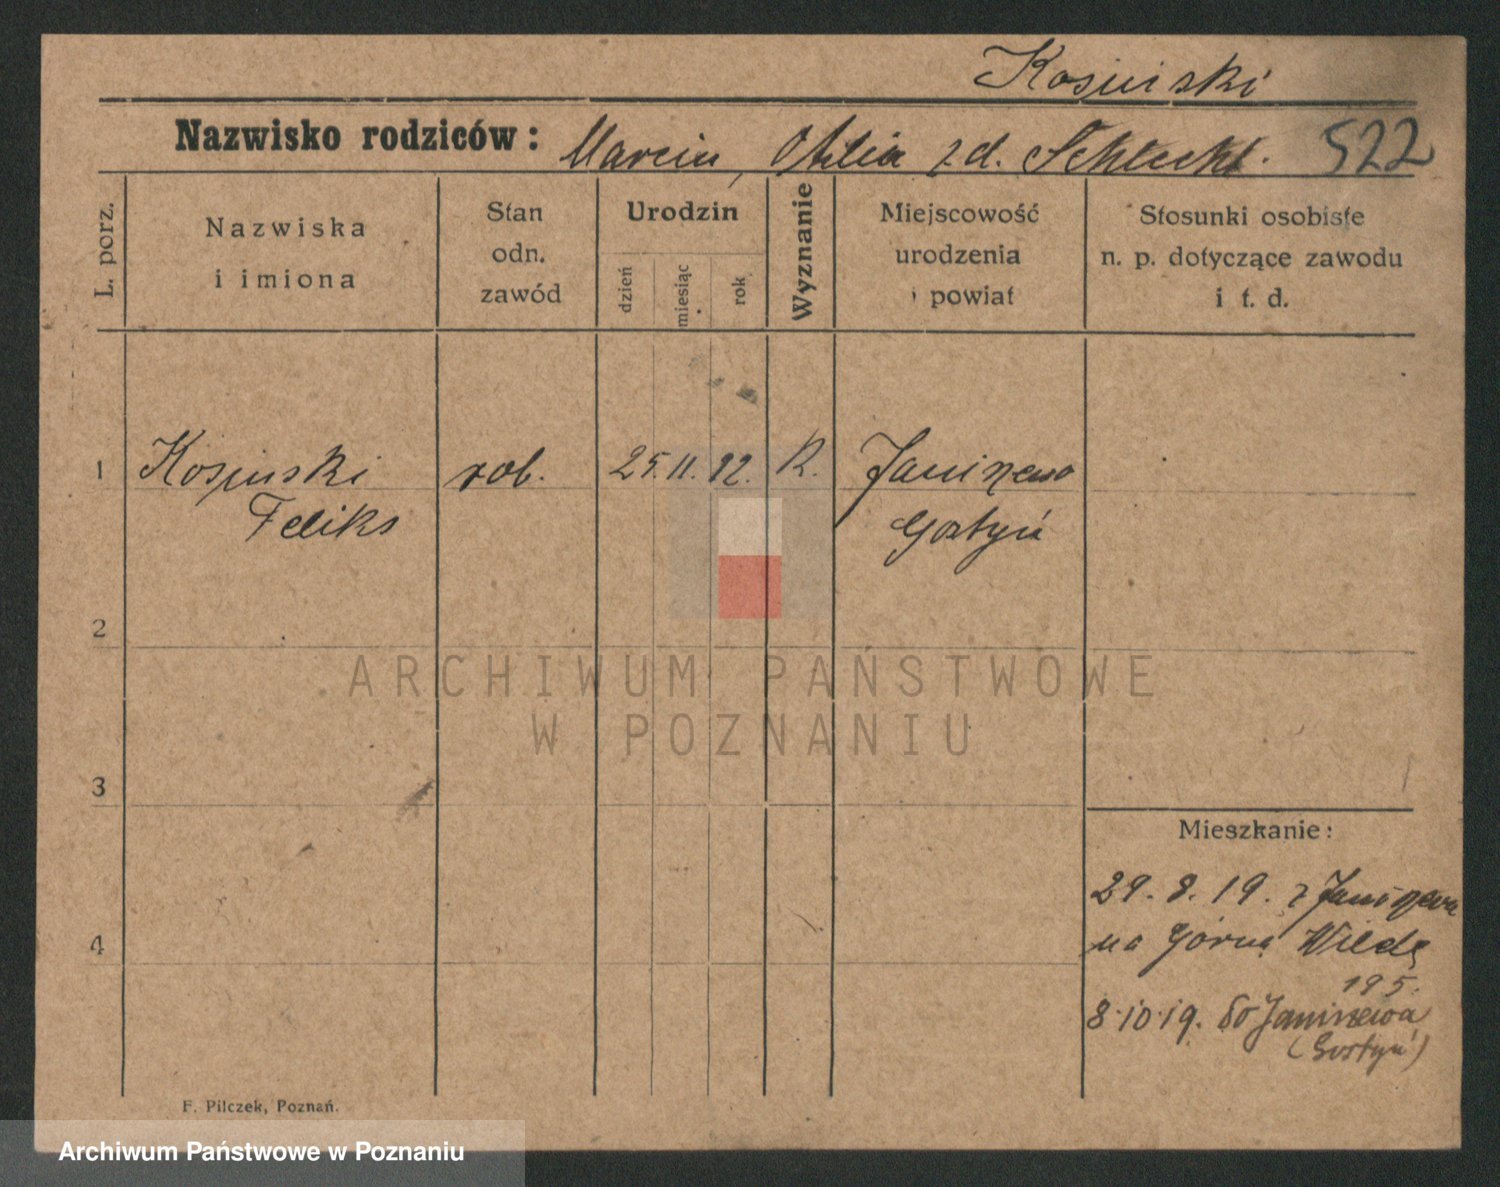 Kosinski
Nazwisko rodziców: Marcin, Otilia zd. 522
L. porz.
Nazwiska
i imiona
Stan
odn.
zawód
Urodzin
dzień
miesiąc
rok
Wyznanie
Miejscowość
urodzenia
i powiat
Stosunki osobiste
n. p. dotyczące zawodu
i t. d.
1 Kosinski rob. 25. 11. 92. R. Janiszewo
Feliks Gostyń
2
ARCHIWUM PAŃSTWOWE
W POZNANIU
3
Mieszkanie:
29. 8. 19. z Janiszewa
4
na Górną Wildę
195.
8.10.19. do Janiszewa
(Gostyń)
F. Pilczek, Poznań.
Archiwum Państwowe w Poznaniu